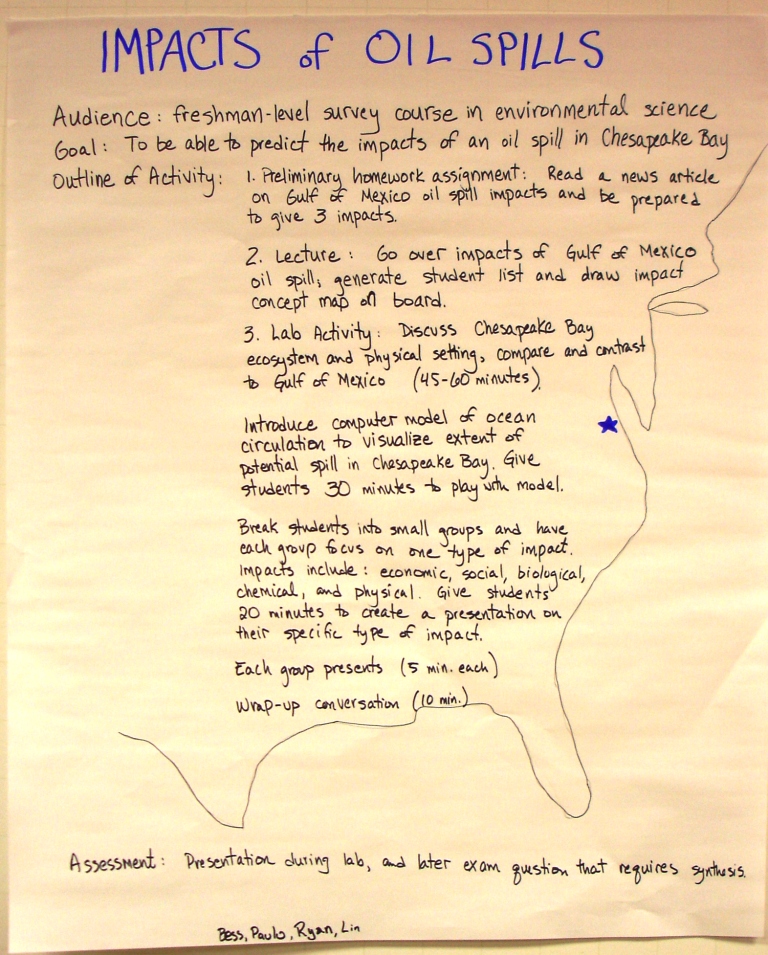 IMPACTS of OIL SPILLS
Audience: freshman-level survey course in environmental science
Goal: To be able to predict the impacts of an oil spill in Chesapeake Bay
Outline of Activity: 1. Preliminary homework assignment: Read a news article
on Gulf of Mexico oil spill impacts and be prepared
to give 3 impacts.
2. Lecture: Go over impacts of Gulf of Mexico
oil spill; generate student list and draw impact
concept map on board.
3. Lab Activity: Discuss Chesapeake Bay
ecosystem and physical setting, compare and contrast
to Gulf of Mexico (45-60 minutes).
Introduce computer model of ocean
circulation to visualize extent of
potential spill in Chesapeake Bay. Give
students 30 minutes to play with model.
Break students into small groups and have
each group focus on one type of impact.
Impacts include: economic, social, biological,
chemical, and physical. Give students
20 minutes to create a presentation on
their specific type of impact.
Each group presents (5 min. each)
Wrap-up conversation (10 min.)
Assessment: Presentation during lab, and later exam question that requires synthesis.
Bess, Paulo, Ryan, Lin